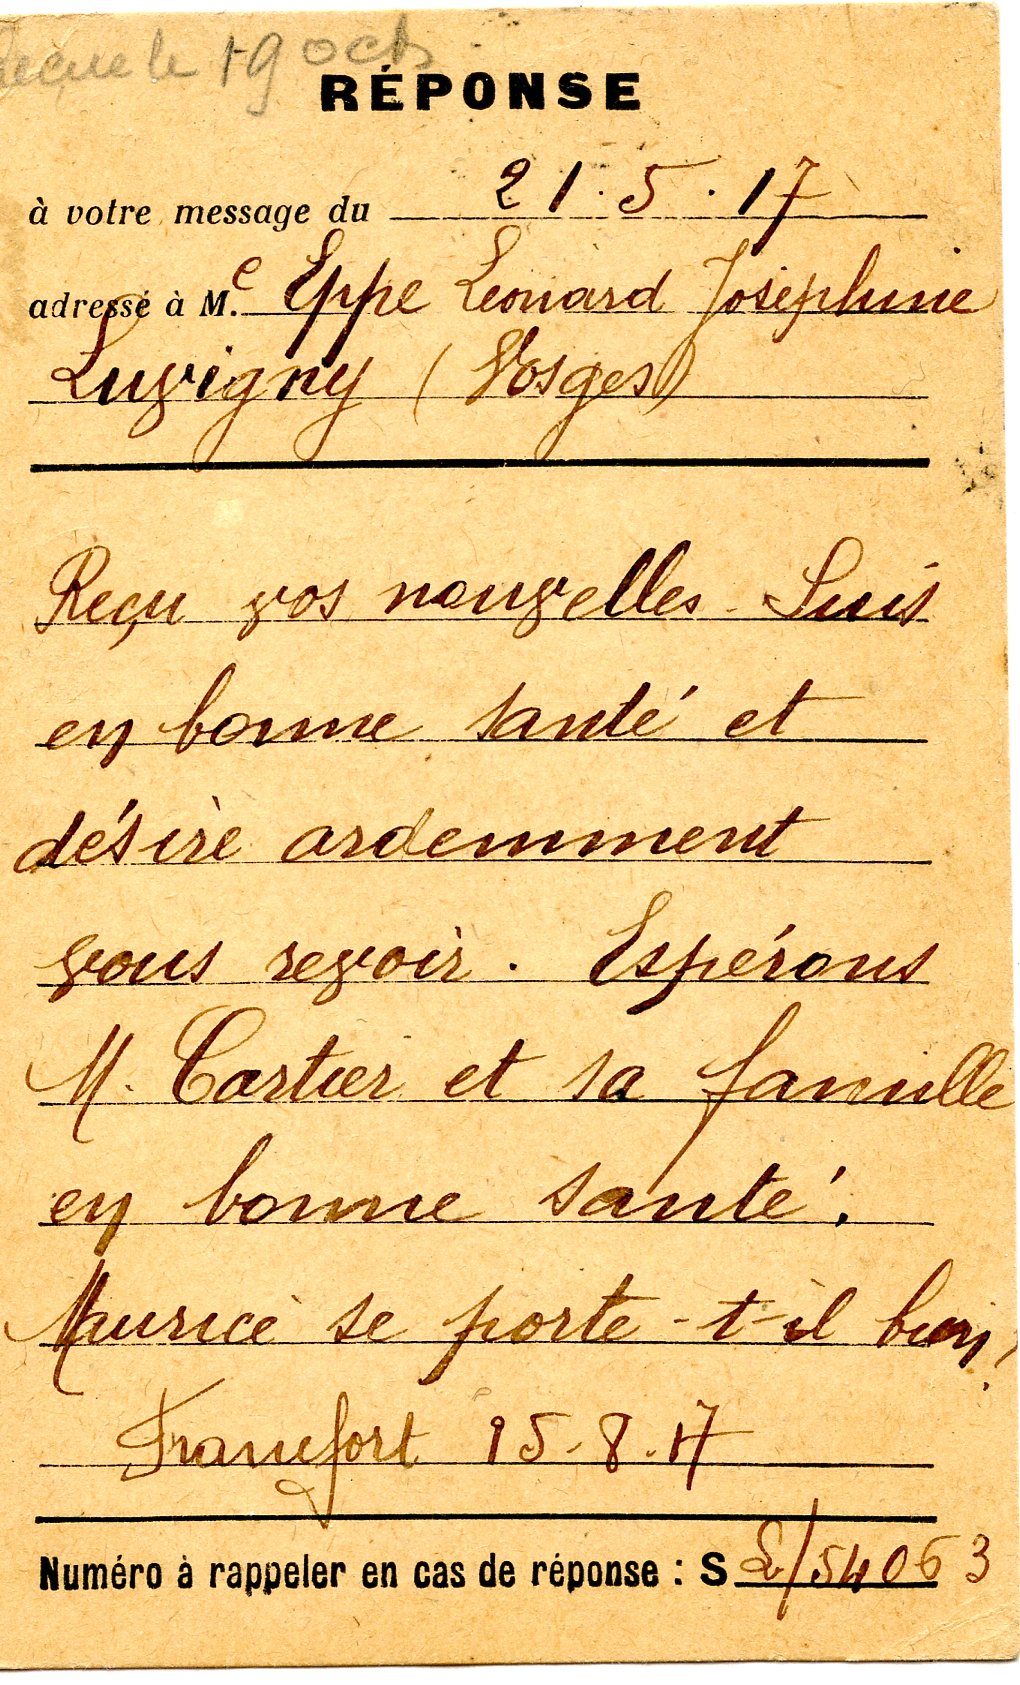 Reçue le 19 oct
RÉPONSE
à votre message du 21.5.17
adressé à M.e Eppe Léonard Joséphine
Luvigny (Vosges)
Reçu vos nouvelles - Suis
en bonne santé et
désire ardemment
vous revoir. Espérons
M. Cartier et sa famille
en bonne santé.
Maurice se porte-t-il bien?
Francfort 15-8.17
Numéro à rappeler en cas de réponse : S L/54063